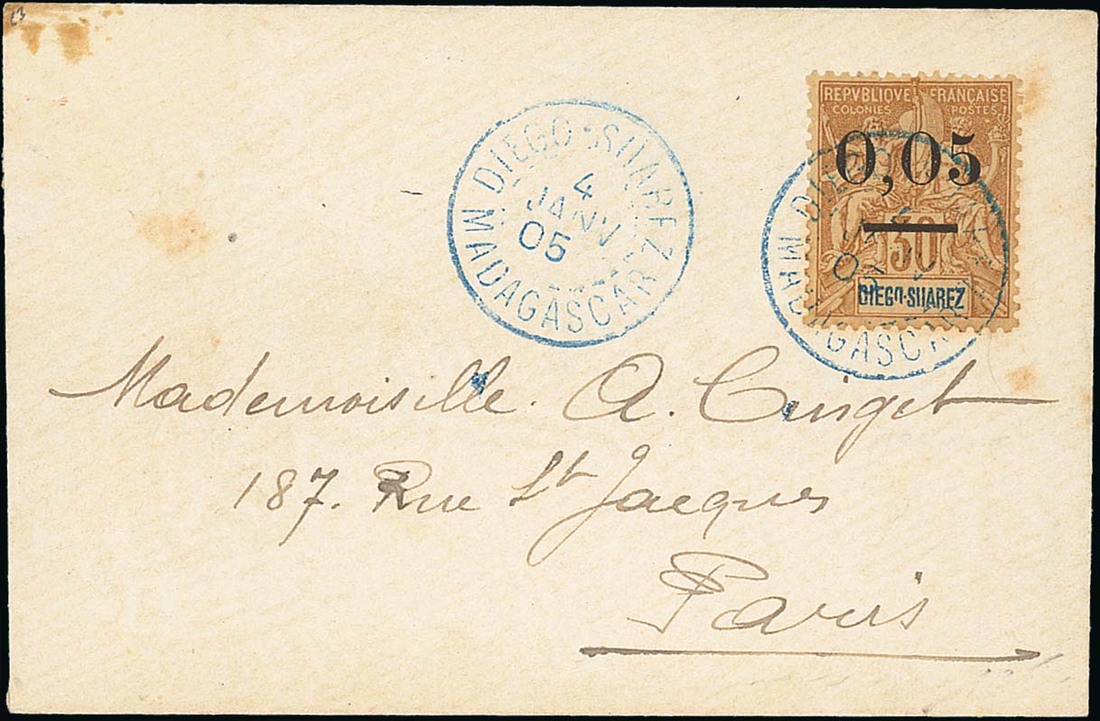 23
REPVBLIQVE FRANÇAISE
COLONIES POSTES
0,05
30
DIEGO-SUAREZ
DIEGO-SUAREZ
4
JANV
05
MADAGASCAR
DIEGO
MADAGASCAR
Mademoiselle. A.
187. Rue St Jacques
Paris